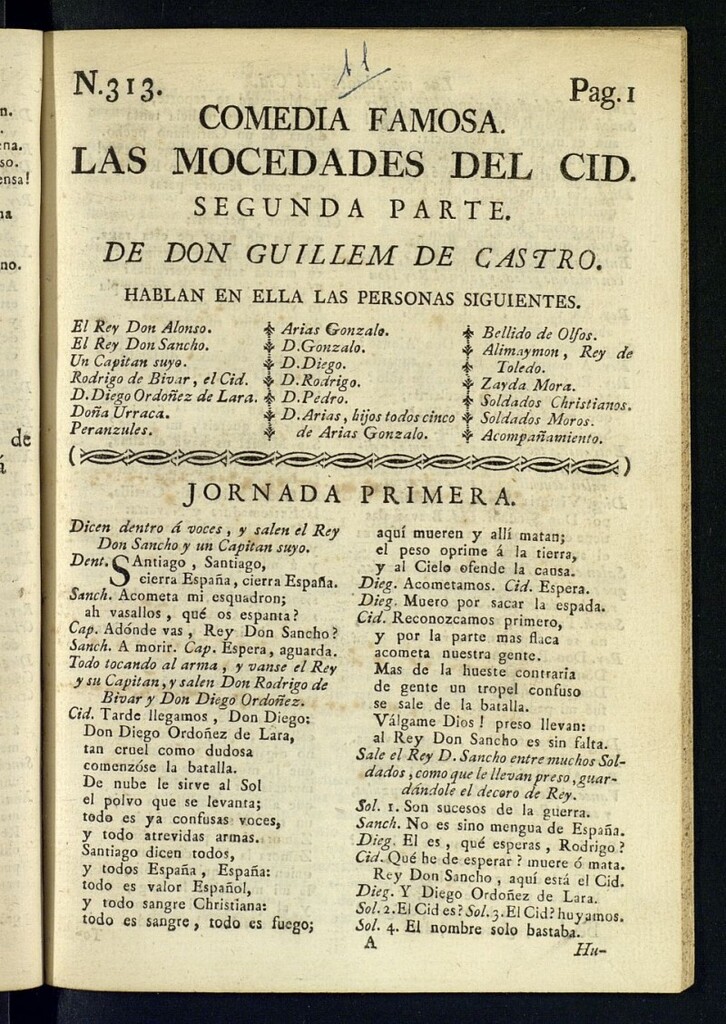 11
N.313.
Pag. 1
COMEDIA FAMOSA.
LAS MOCEDADES DEL CID.
SEGUNDA PARTE.
DE DON GUILLEM DE CASTRO.
HABLAN EN ELLA LAS PERSONAS SIGUIENTES.
El Rey Don Alonso.
El Rey Don Sancho.
Un Capitan suyo.
Rodrigo de Bivar, el Cid.
D. Diego Ordoñez de Lara.
Doña Urraca.
Peranzules.
Arias Gonzalo.
D. Gonzalo.
D. Diego.
D. Rodrigo.
D. Pedro.
D. Arias, hijos todos cinco
de Arias Gonzalo.
Bellido de Olfos.
Alimaymon, Rey de
Toledo.
Zayda Mora.
Soldados Christianos.
Soldados Moros.
Acompañamiento.
JORNADA PRIMERA.
Dicen dentro á voces, y salen el Rey
Don Sancho y un Capitan suyo.
Dent. SAntiago, Santiago,
cierra España, cierra España.
Sanch. Acometa mi esquadron;
ah vasallos, qué os espanta?
Cap. Adónde vas, Rey Don Sancho?
Sanch. A morir. Cap. Espera, aguarda.
Todo tocando al arma, y vanse el Rey
y su Capitan, y salen Don Rodrigo de
Bivar y Don Diego Ordoñez.
Cid. Tarde llegamos, Don Diego:
Don Diego Ordoñez de Lara,
tan cruel como dudosa
comenzóse la batalla.
De nube le sirve al Sol
el polvo que se levanta;
todo es ya confusas voces,
y todo atrevidas armas.
Santiago dicen todos,
y todos España, España:
todo es valor Español,
y todo sangre Christiana:
todo es sangre, todo es fuego;
aquí mueren y allí matan;
el peso oprime á la tierra,
y al Cielo ofende la causa.
Dieg. Acometamos. Cid. Espera.
Dieg. Muero por sacar la espada.
Cid. Reconozcamos primero,
y por la parte mas flaca
acometa nuestra gente.
Mas de la hueste contraria
de gente un tropel confuso
se sale de la batalla.
Válgame Dios! preso llevan:
al Rey Don Sancho es sin falta.
Sale el Rey D. Sancho entre muchos Sol-
dados, como que le llevan preso, guar-
dándole el decoro de Rey.
Sol. 1. Son sucesos de la guerra.
Sanch. No es sino mengua de España.
Dieg. El es, qué esperas, Rodrigo?
Cid. Qué he de esperar? muere ó mata.
Rey Don Sancho, aquí está el Cid.
Dieg. Y Diego Ordoñez de Lara.
Sol. 2. El Cid es? Sol. 3. El Cid? huyamos.
Sol. 4. El nombre solo bastaba.
A
Hu-